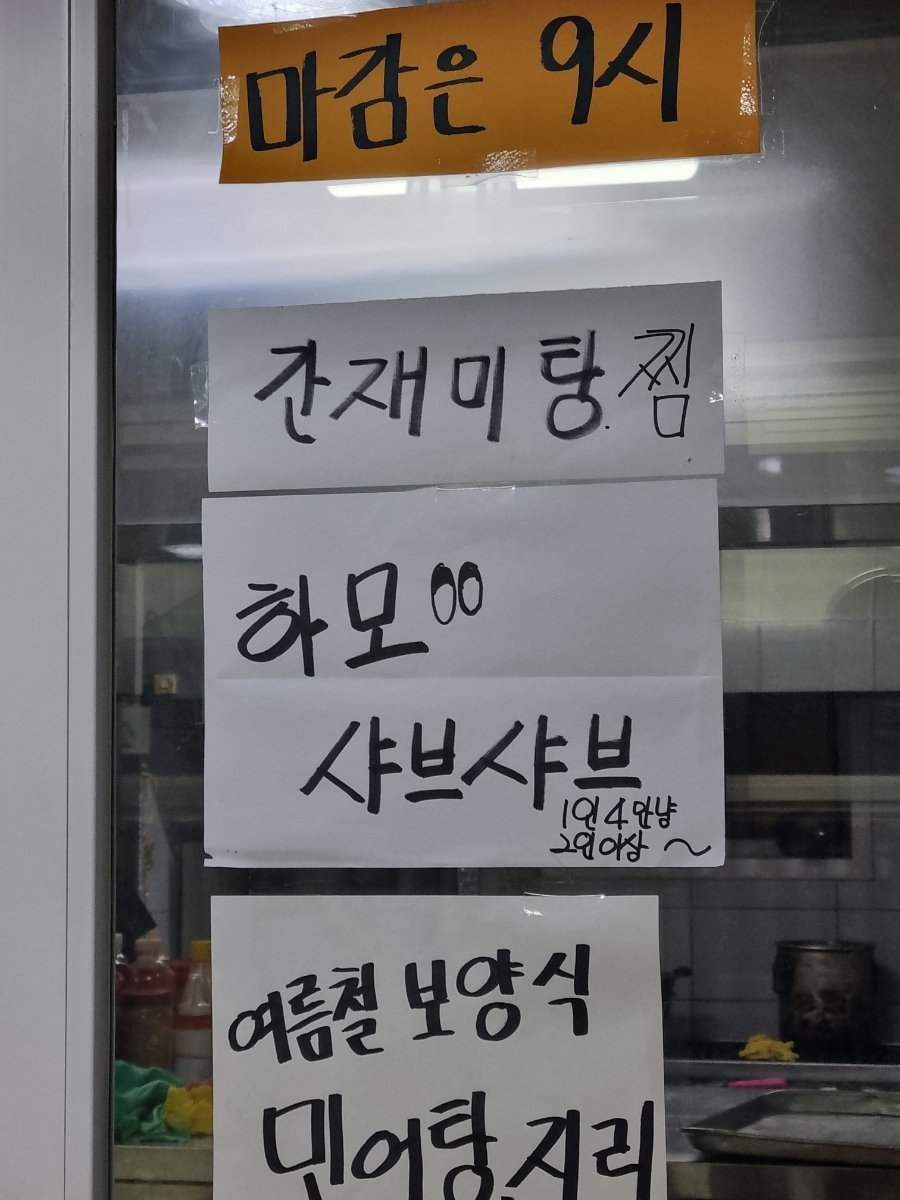 마감은 9시
간재미탕.찜
하모
샤브샤브
1인 4만냥
2인이상 ~
여름철 보양식
민어탕.지리